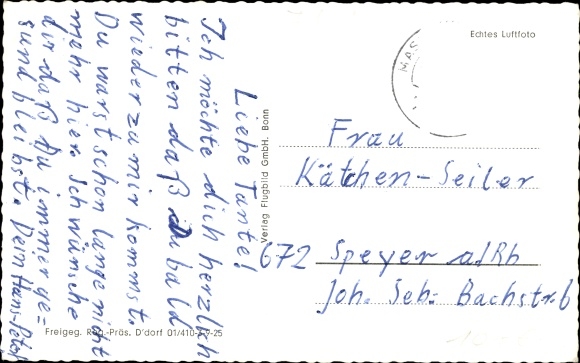 Liebe Tante!
Ich möchte dich herzlich
bitten daß du bald
wieder zu mir kommst.
Du warst schon lange nicht
mehr hier. Ich wünsche
dir daß Du immer ge=
sund bleibst. Dein Hans-Peter
Echtes Luftfoto
MAS
Verlag Flugbild GmbH. Bonn
Frau
Käthen-Seiler
672 Speyer a/Rh
Joh. Seb: Bachstr. 6
Freigeg. Reg.-Präs. D'dorf 01/410-7-9-25